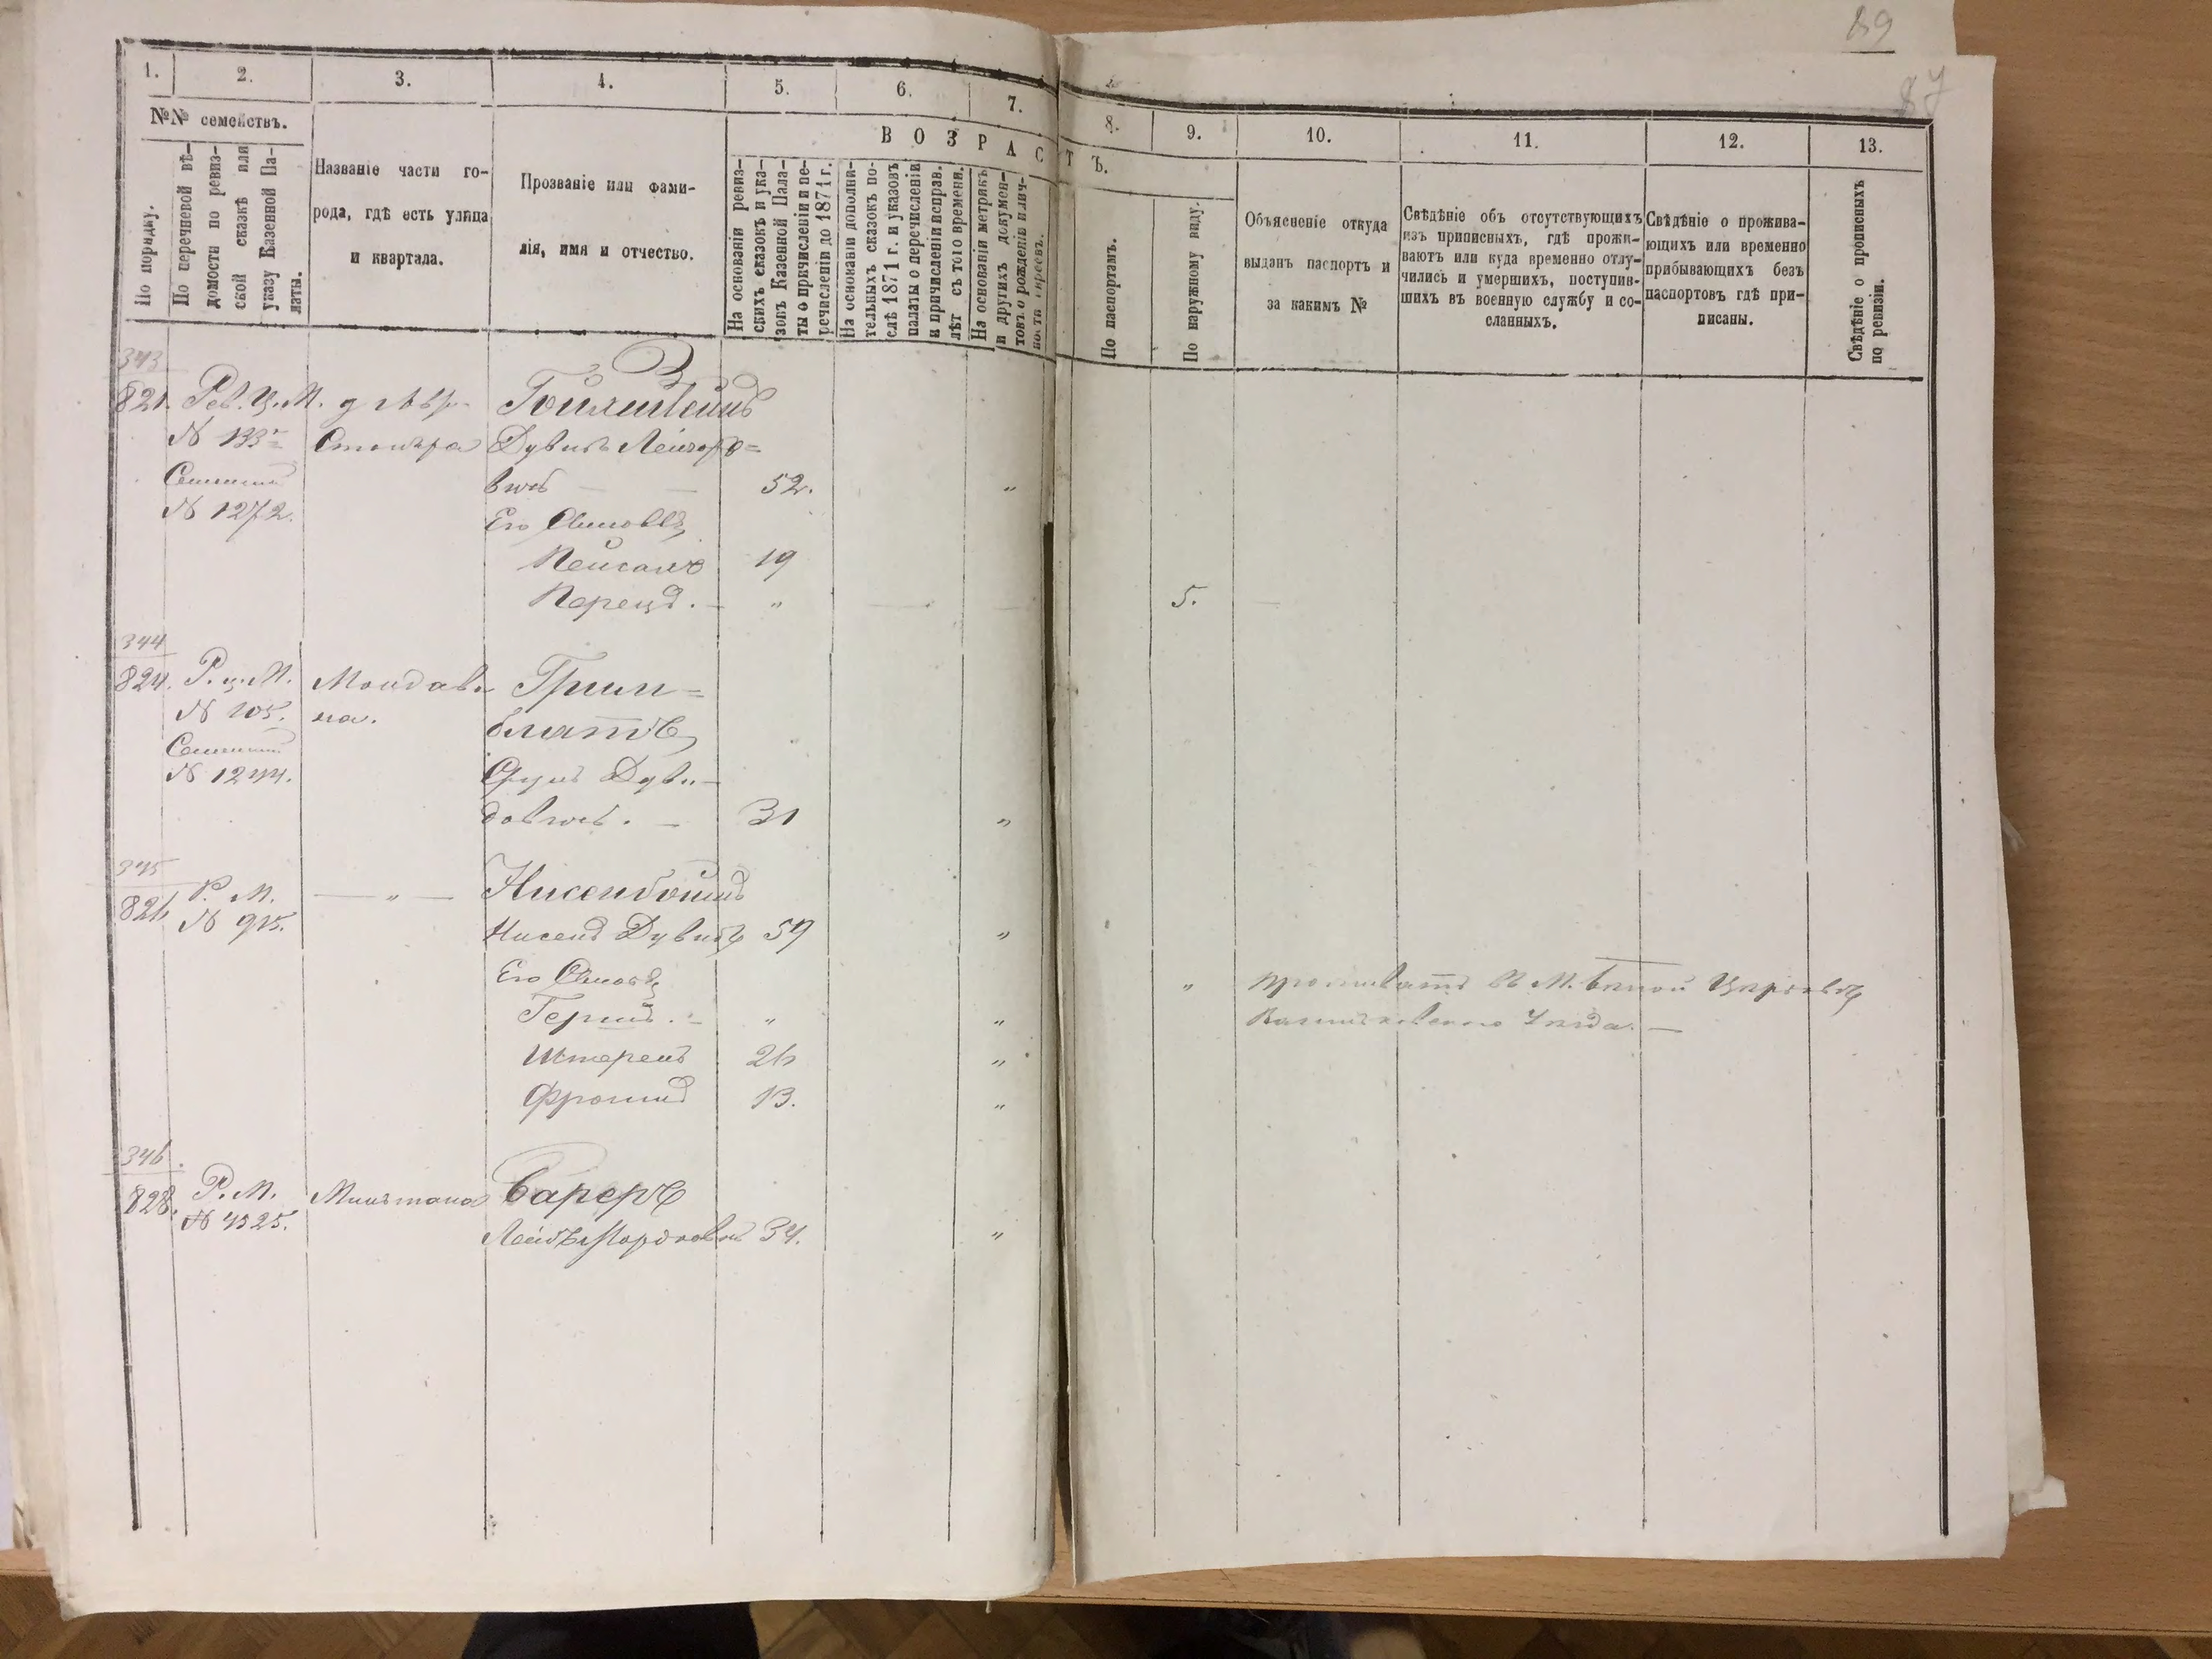 89
87
1.
2.
3.
4.
5.
6.
7.
8.
9.
10.
11.
12.
13.
№№ семействъ.
В О З Р А С Т Ъ.
По порядку.
По перечневой вѣ-
домости по ревиз-
ской сказкѣ или
указу Казенной Па-
латы.
Названіе части го-
рода, гдѣ есть улица
и квартала.
Прозваніе или фами-
лія, имя и отчество.
На основаніи ревиз-
скихъ сказокъ и ука-
зовъ Казенной Пала-
ты о причисленіи и пе-
речисленіи до 1871 г.
На основаніи дополни-
тельныхъ сказокъ по-
слѣ 1871 г. и указовъ
палаты о перечисленіи
и причисленіи исправ.
лѣт съ того времени.
На основаніи метрикъ
и другихъ докумен-
товъ о рожденіи и лич-
ности евреевъ.
По паспортамъ.
По наружному виду.
Объясненіе откуда
выданъ паспортъ и
за какимъ №
Свѣдѣніе объ отсутствующихъ
изъ приписныхъ, гдѣ прожи-
ваютъ или куда временно отлу-
чились и умершихъ, поступив-
шихъ въ военную службу и со-
сланныхъ.
Свѣдѣніе о прожива-
ющихъ или временно
прибывающихъ безъ
паспортовъ гдѣ при-
писаны.
Свѣдѣніе о прописныхъ
по ревизіи.
343
821. Рев. Ц. М.
N 133
N 1272.
Дувидъ
вичъ — — 52. "
Его Сыновья
Пейсахъ 19
Перецъ. — " 5.
344
824. Р. ц. М. Молдав- Грин=
N 105. ка. блатъ
N 1244. Сруль Дуви-
довичъ. — 31 "
345
826 Р. М. — " — Нисенбоймъ
N 915. Нисенъ Дувидъ 59 "
Его Сыновья
Гершъ. — " " " Проживаетъ въ М. Бѣлой Церковѣ
Васильковскаго Уѣзда. —
26 "
Фроимъ 13. "
346
828. Р. М.
N 4525.
Лейбъ Мордковъ 34. "